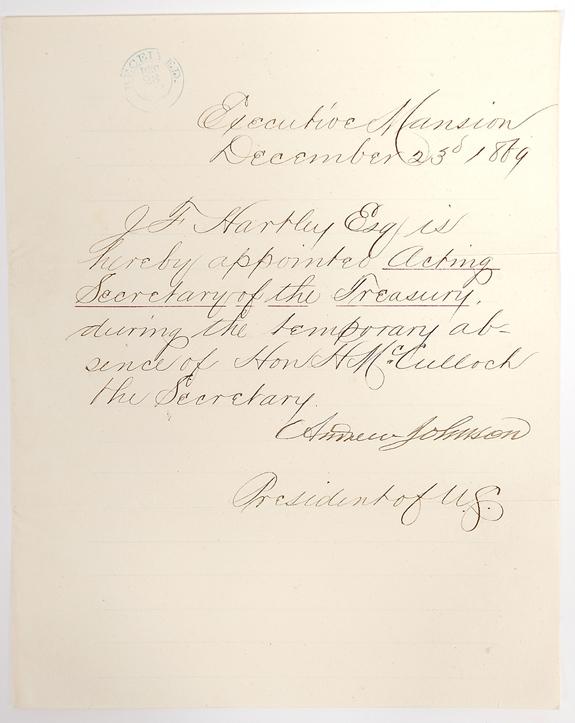 RECEIVED
DEC
Executive Mansion
December 23d 1869
J F Hartley Esq is
hereby appointed Acting
Secretary of the Treasury,
during the temporary ab-
sence of Hon H McCulloch
the Secretary.
Andrew Johnson
President of U.S.